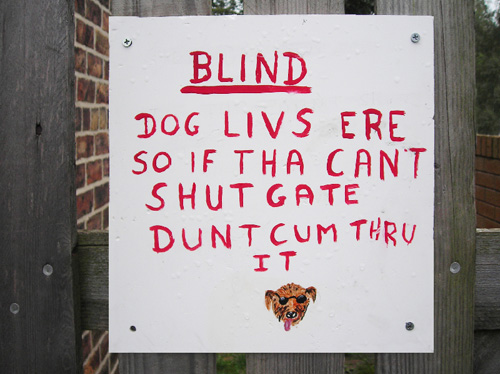 BLIND
DOG LIVS ERE
SO IF THA CAN'T
SHUT GATE
DUNT CUM THRU
IT